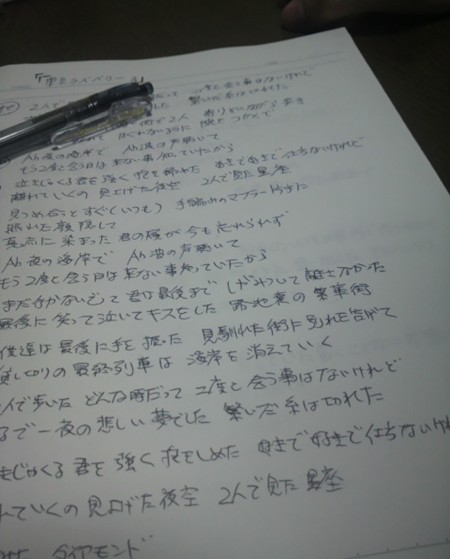 2人で
Ah 夜の海岸で Ah 波の声聴いて
もう2度と会う日は来ない事知っていたから
泣きじゃくる君を強く抱き締めた 好きで好きで仕方ないけれど
離れていくの見上げた夜空 2人で見た星座
見つめ合うとすぐ(いつも) 手編みのマフラー片手に
照れた顔隠して
真っ赤に染まった君の頬が今も忘れられず
Ah 夜の海岸で Ah 波の声聴いて
もう2度と会う日は来ない事知っていたから
まだ行かないでって君は最後まで しがみついて離さなかった
最後に笑って泣いてキスをした 路地裏の
僕達は最後に手を振った 見馴れた街に別れを告げて
貸し切りの最終列車は 海岸を消えていく
2人で歩いた どんな時だって 二度と会う事はないけれど
まるで一夜の悲しい夢でした 繋いだ糸は切れた
泣きじゃくる君を強く抱きしめた 好きで好きで仕方ないけれ
れていくの見上げた夜空 2人で見た星座
ダイアモンド